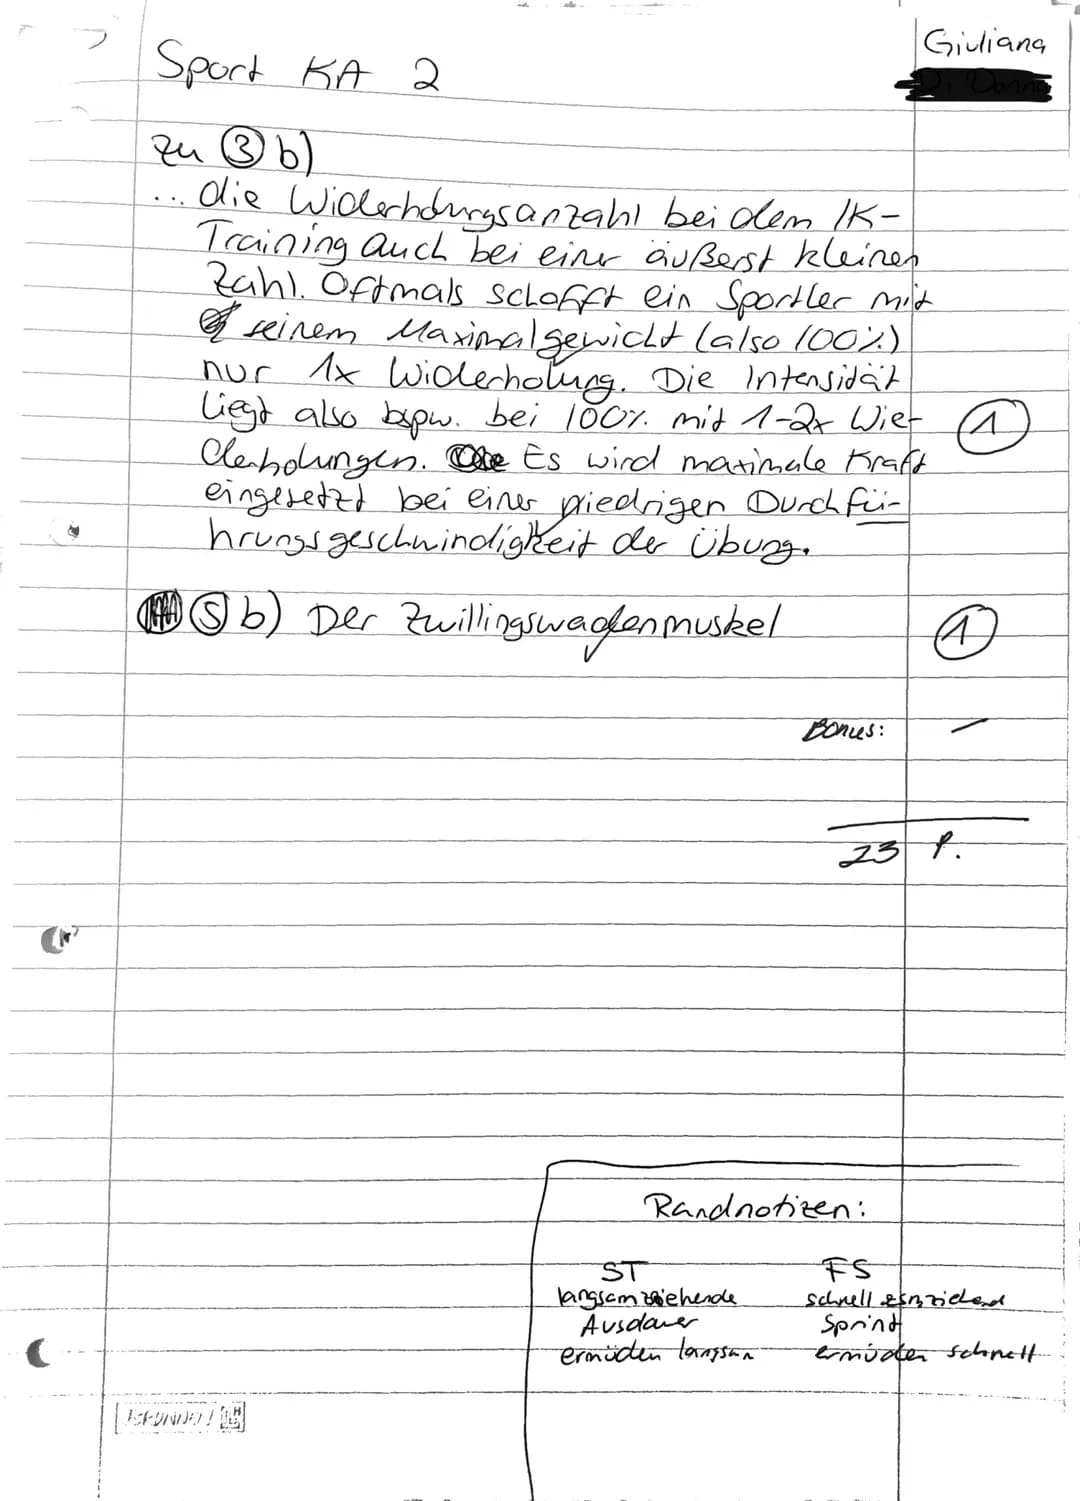 Giuliana
Sport KA 2
zu ③ b)
... die Widerholungsanzahl bei dem IK-
Training auch bei einer äußerst kleinen
Zahl. Oftmals schafft ein Sportler mit
seinem Maximalgewicht (also 100%)
nur 1x Widerholung. Die Intensität
liegt also bspw. bei 100% mit 1-2x Wie-
derholungen. Es wird maximale Kraft
eingesetzt bei einer niedrigen Durchfüh-
hrungsgeschwindigkeit der Übung.
①
⑤ b) Der Zwillingswadenmuskel
①
Bonus: –
23 P.
Randnotizen:
ST FS
langsamziehende schnell
Ausdauer Sprint
ermüden langsam ermüden schnell